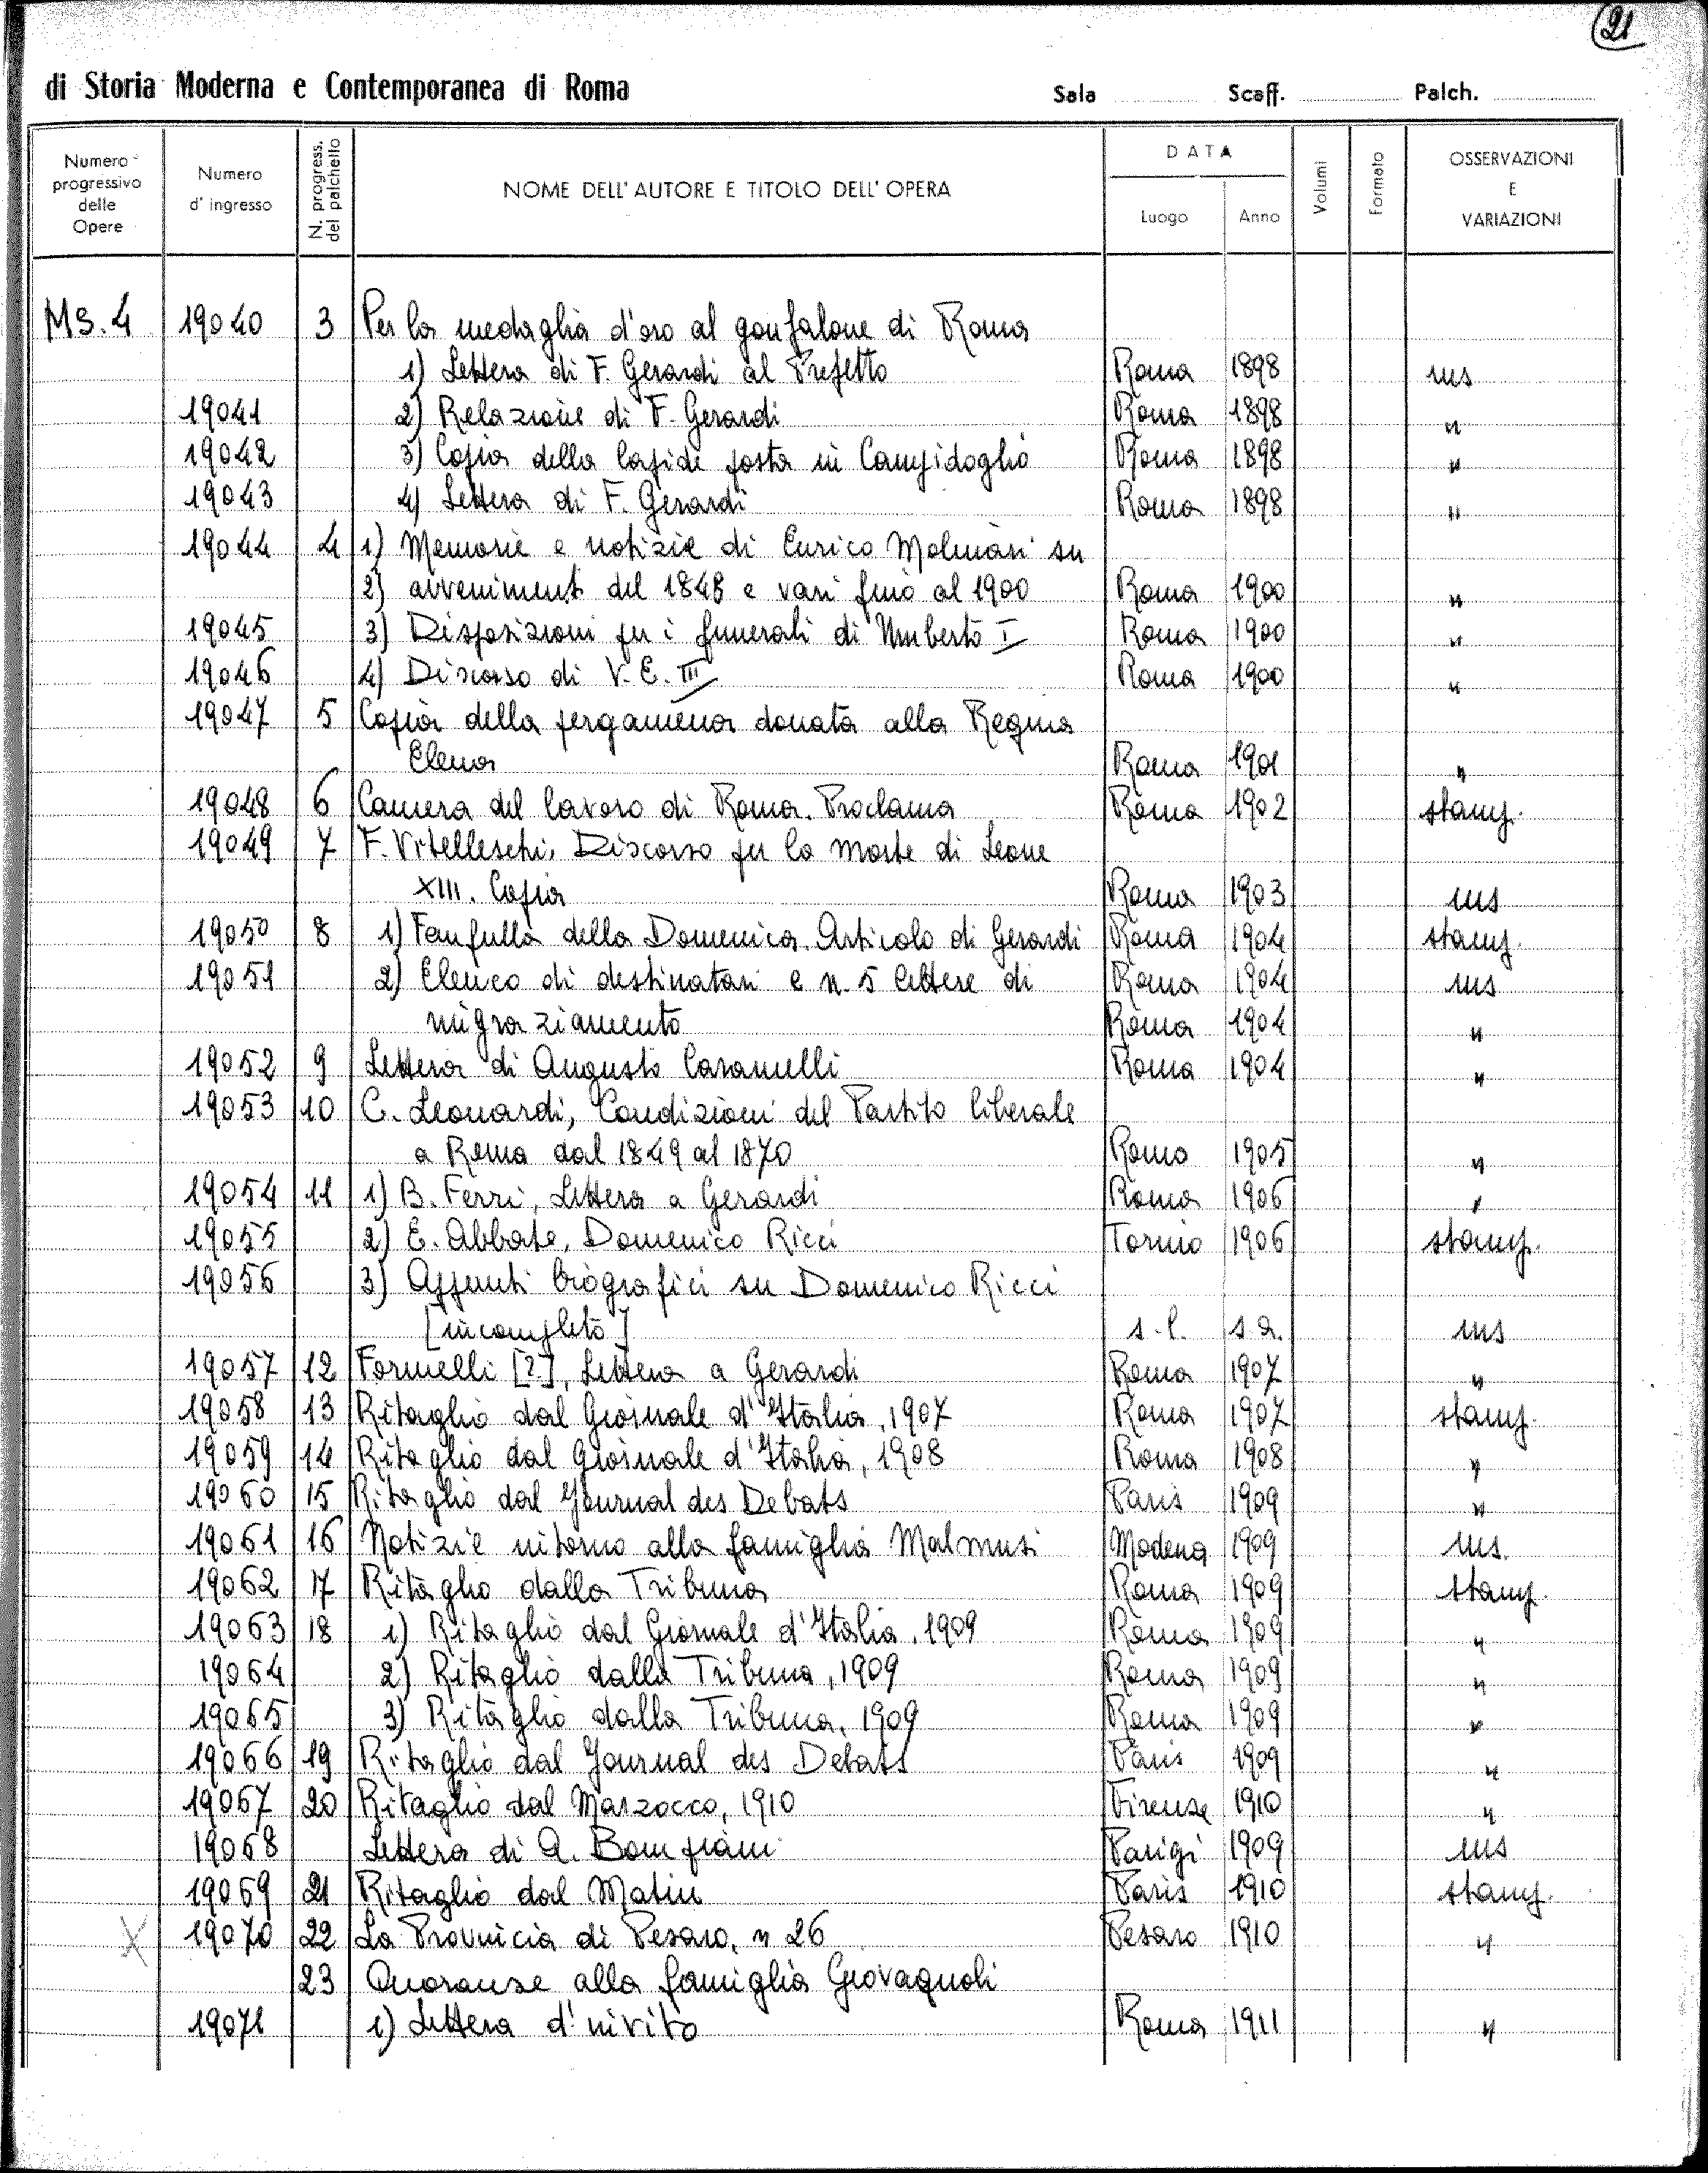 21
di Storia Moderna e Contemporanea di Roma Sala Scaff. Palch.
Numero progressivo delle Opere Numero d'ingresso N. progress. del palchetto NOME DELL'AUTORE E TITOLO DELL'OPERA DATA Luogo Anno Volumi Formato OSSERVAZIONI E VARIAZIONI
MS. 4 19040 3 Per la medaglia d'oro al gonfalone di Roma
1) Lettera di F. Gerardi al Prefetto Roma 1898 ms
19041 2) Relazione di F. Gerardi Roma 1898 "
19042 3) Copia della lapide posta in Campidoglio Roma 1898 "
19043 4) Lettera di F. Gerardi Roma 1898 "
19044 4 1) Memorie e notizie di Enrico Molinari su
2) avvenimenti del 1848 e vari fino al 1900 Roma 1900 "
19045 3) Disposizioni per i funerali di Umberto I Roma 1900 "
19046 4) Discorso di V. E. III Roma 1900 "
19047 5 Copia della pergamena donata alla Regina
Elena Roma 1901 "
19048 6 Camera del lavoro di Roma. Proclama Roma 1902 stamp.
19049 7 F. Vitelleschi, Discorso per la morte di Leone
XIII. Copia Roma 1903 ms
19050 8 1) Fanfulla della Domenica. Articolo di Gerardi Roma 1904 stamp.
19051 2) Elenco di destinatari e n. 5 lettere di Roma 1904 ms
ringraziamento Roma 1904 "
19052 9 Lettera di Augusto Caramelli Roma 1904 "
19053 10 C. Leonardi, Condizioni del Partito liberale
a Roma dal 1849 al 1870 Roma 1905 "
19054 11 1) B. Ferri, Lettera a Gerardi Roma 1906 "
19055 2) E. Abbate, Domenico Ricci Torino 1906 stamp.
19056 3) Appunti biografici su Domenico Ricci
[incompleto] s.l. s.a. ms
19057 12 Formelli [?], Lettera a Gerardi Roma 1907 "
19058 13 Ritaglio dal Giornale d'Italia, 1907 Roma 1907 stamp.
19059 14 Ritaglio dal Giornale d'Italia, 1908 Roma 1908 "
19060 15 Ritaglio dal Journal des Debats Paris 1909 "
19061 16 Notizie intorno alla famiglia Malmusi Modena 1909 ms.
19062 17 Ritaglio dalla Tribuna Roma 1909 stamp.
19063 18 1) Ritaglio dal Giornale d'Italia, 1909 Roma 1909 "
19064 2) Ritaglio dalla Tribuna, 1909 Roma 1909 "
19065 3) Ritaglio dalla Tribuna, 1909 Roma 1909 "
19066 19 Ritaglio dal Journal des Debats Paris 1909 "
19067 20 Ritaglio dal Marzocco, 1910 Firenze 1910 "
19068 Lettera di A. Bompiani Parigi 1909 ms
19069 21 Ritaglio dal Matin Paris 1910 stamp.
X 19070 22 La Provincia di Pesaro, n 26 Pesaro 1910 "
23 Onoranze alla famiglia Giovagnoli
19071 1) Lettera d'invito Roma 1911 "